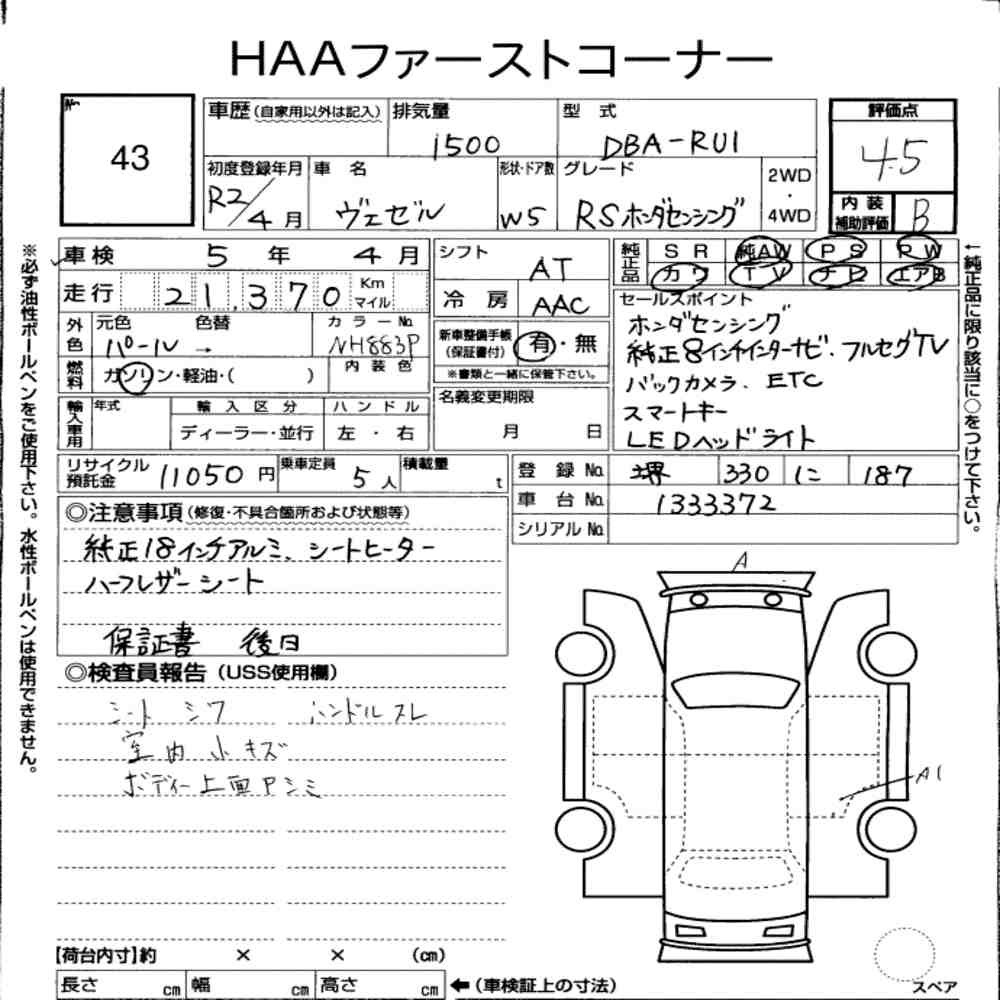 HAAファーストコーナー
No. 43
車歴(自家用以外は記入) 排気量 1500 型式 DBA-RU1
評価点 4.5
初度登録年月 R2/4月 車名 ヴェゼル 形状・ドア数 W5 グレード RSホンダセンシング 2WD・4WD
内装補助評価 B
車検 5年 4月
シフト AT
純正品 SR 純AW PS PW
カワ TV ナビ エアB
走行 21,370 Km マイル
冷房 AAC
セールスポイント
ホンダセンシング
純正8インチインターナビ・フルセグTV
バックカメラ、ETC
スマートキー
LEDヘッドライト
外色 元色 パール → 色替 カラーNo. NH883P
内装色
新車整備手帳(保証書付) 有・無
※書類と一緒に保管下さい。
燃料 ガソリン・軽油・( )
輸入車用 年式 輸入区分 ハンドル
ディーラー・並行 左・右
名義変更期限 月 日
リサイクル預託金 11050円 乗車定員 5人 積載量 t
登録No. 堺 330 に 187
車台No. 1333372
シリアルNo.
◎注意事項(修復・不具合箇所および状態等)
純正18インチアルミ、シートヒーター
ハーフレザーシート
保証書 後日
◎検査員報告(USS使用欄)
シート シワ ハンドルスレ
室内小キズ
ボディー上面Pシミ
A
A1
【荷台内寸】約 × × (cm)
長さ cm 幅 cm 高さ cm ←(車検証上の寸法)
スペア
※必ず油性ボールペンをご使用下さい。水性ボールペンは使用できません。
←純正品に限り該当に○をつけて下さい。